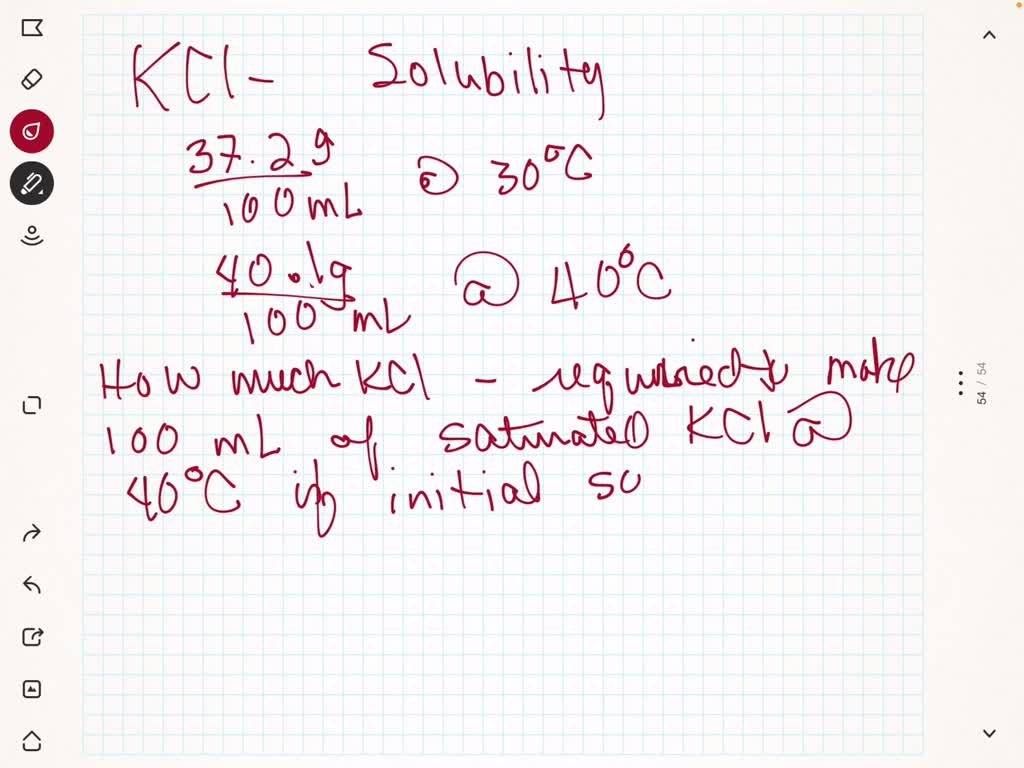 KCl - Solubility
37.2g
100mL @ 30°C
40.1g
100 mL @ 40°C
How much KCl - required to make
100 mL of saturated KCl @
40°C if initial so
54 / 54